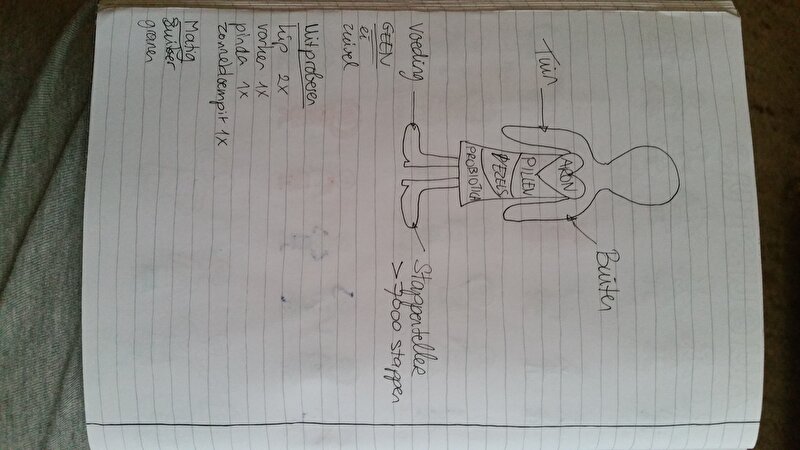 Tuin
Buiten
ARON
PILLEN
VEZELS
PROBIOTICA
Voeding
Stappenteller
> 7000 stappen
GEEN
ei
zuivel
Uitproberen
kip 2x
varken 1x
pinda 1x
zonnebloempit 1x
Matig
suiker
granen